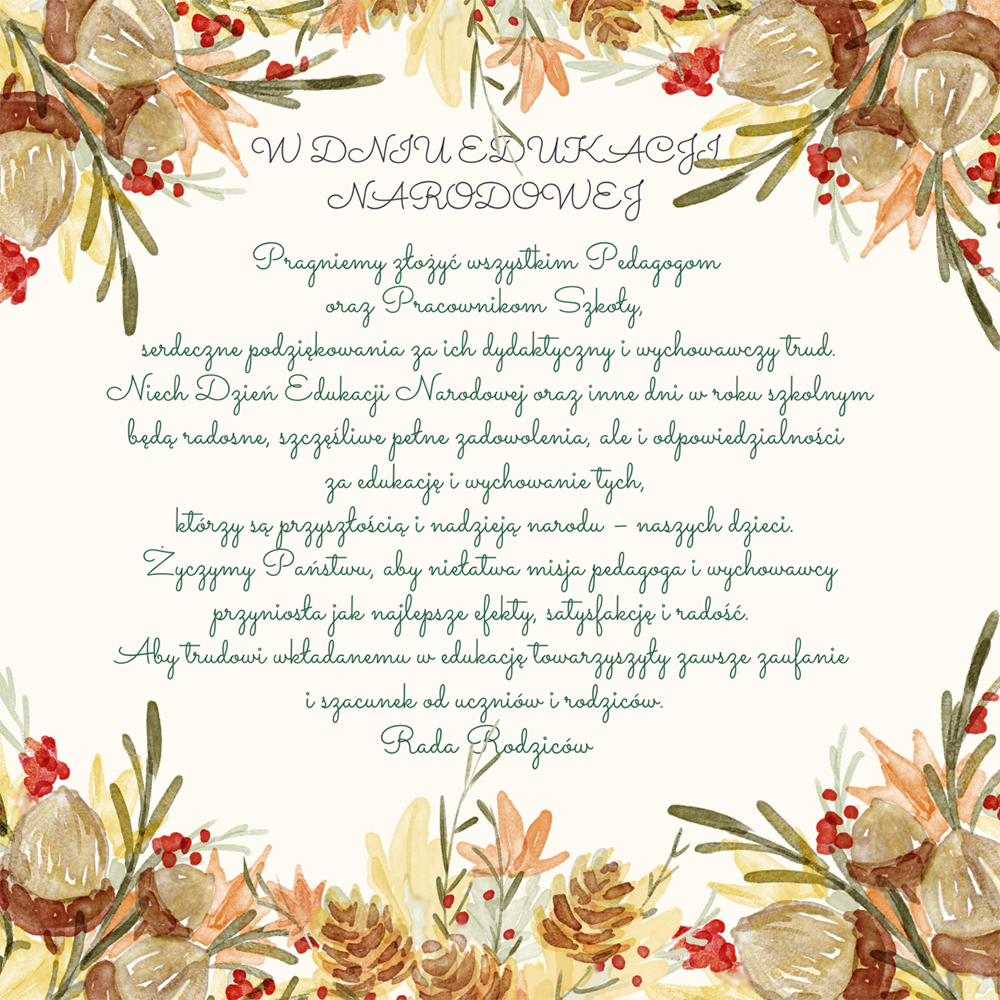 W DNIU EDUKACJI
NARODOWEJ
Pragniemy złożyć wszystkim Pedagogom
oraz Pracownikom Szkoły,
serdeczne podziękowania za ich dydaktyczny i wychowawczy trud.
Niech Dzień Edukacji Narodowej oraz inne dni w roku szkolnym
będą radosne, szczęśliwe pełne zadowolenia, ale i odpowiedzialności
za edukację i wychowanie tych,
którzy są przyszłością i nadzieją narodu – naszych dzieci.
Życzymy Państwu, aby niełatwa misja pedagoga i wychowawcy
przyniosła jak najlepsze efekty, satysfakcję i radość.
Aby trudowi wkładanemu w edukację towarzyszyły zawsze zaufanie
i szacunek od uczniów i rodziców.
Rada Rodziców